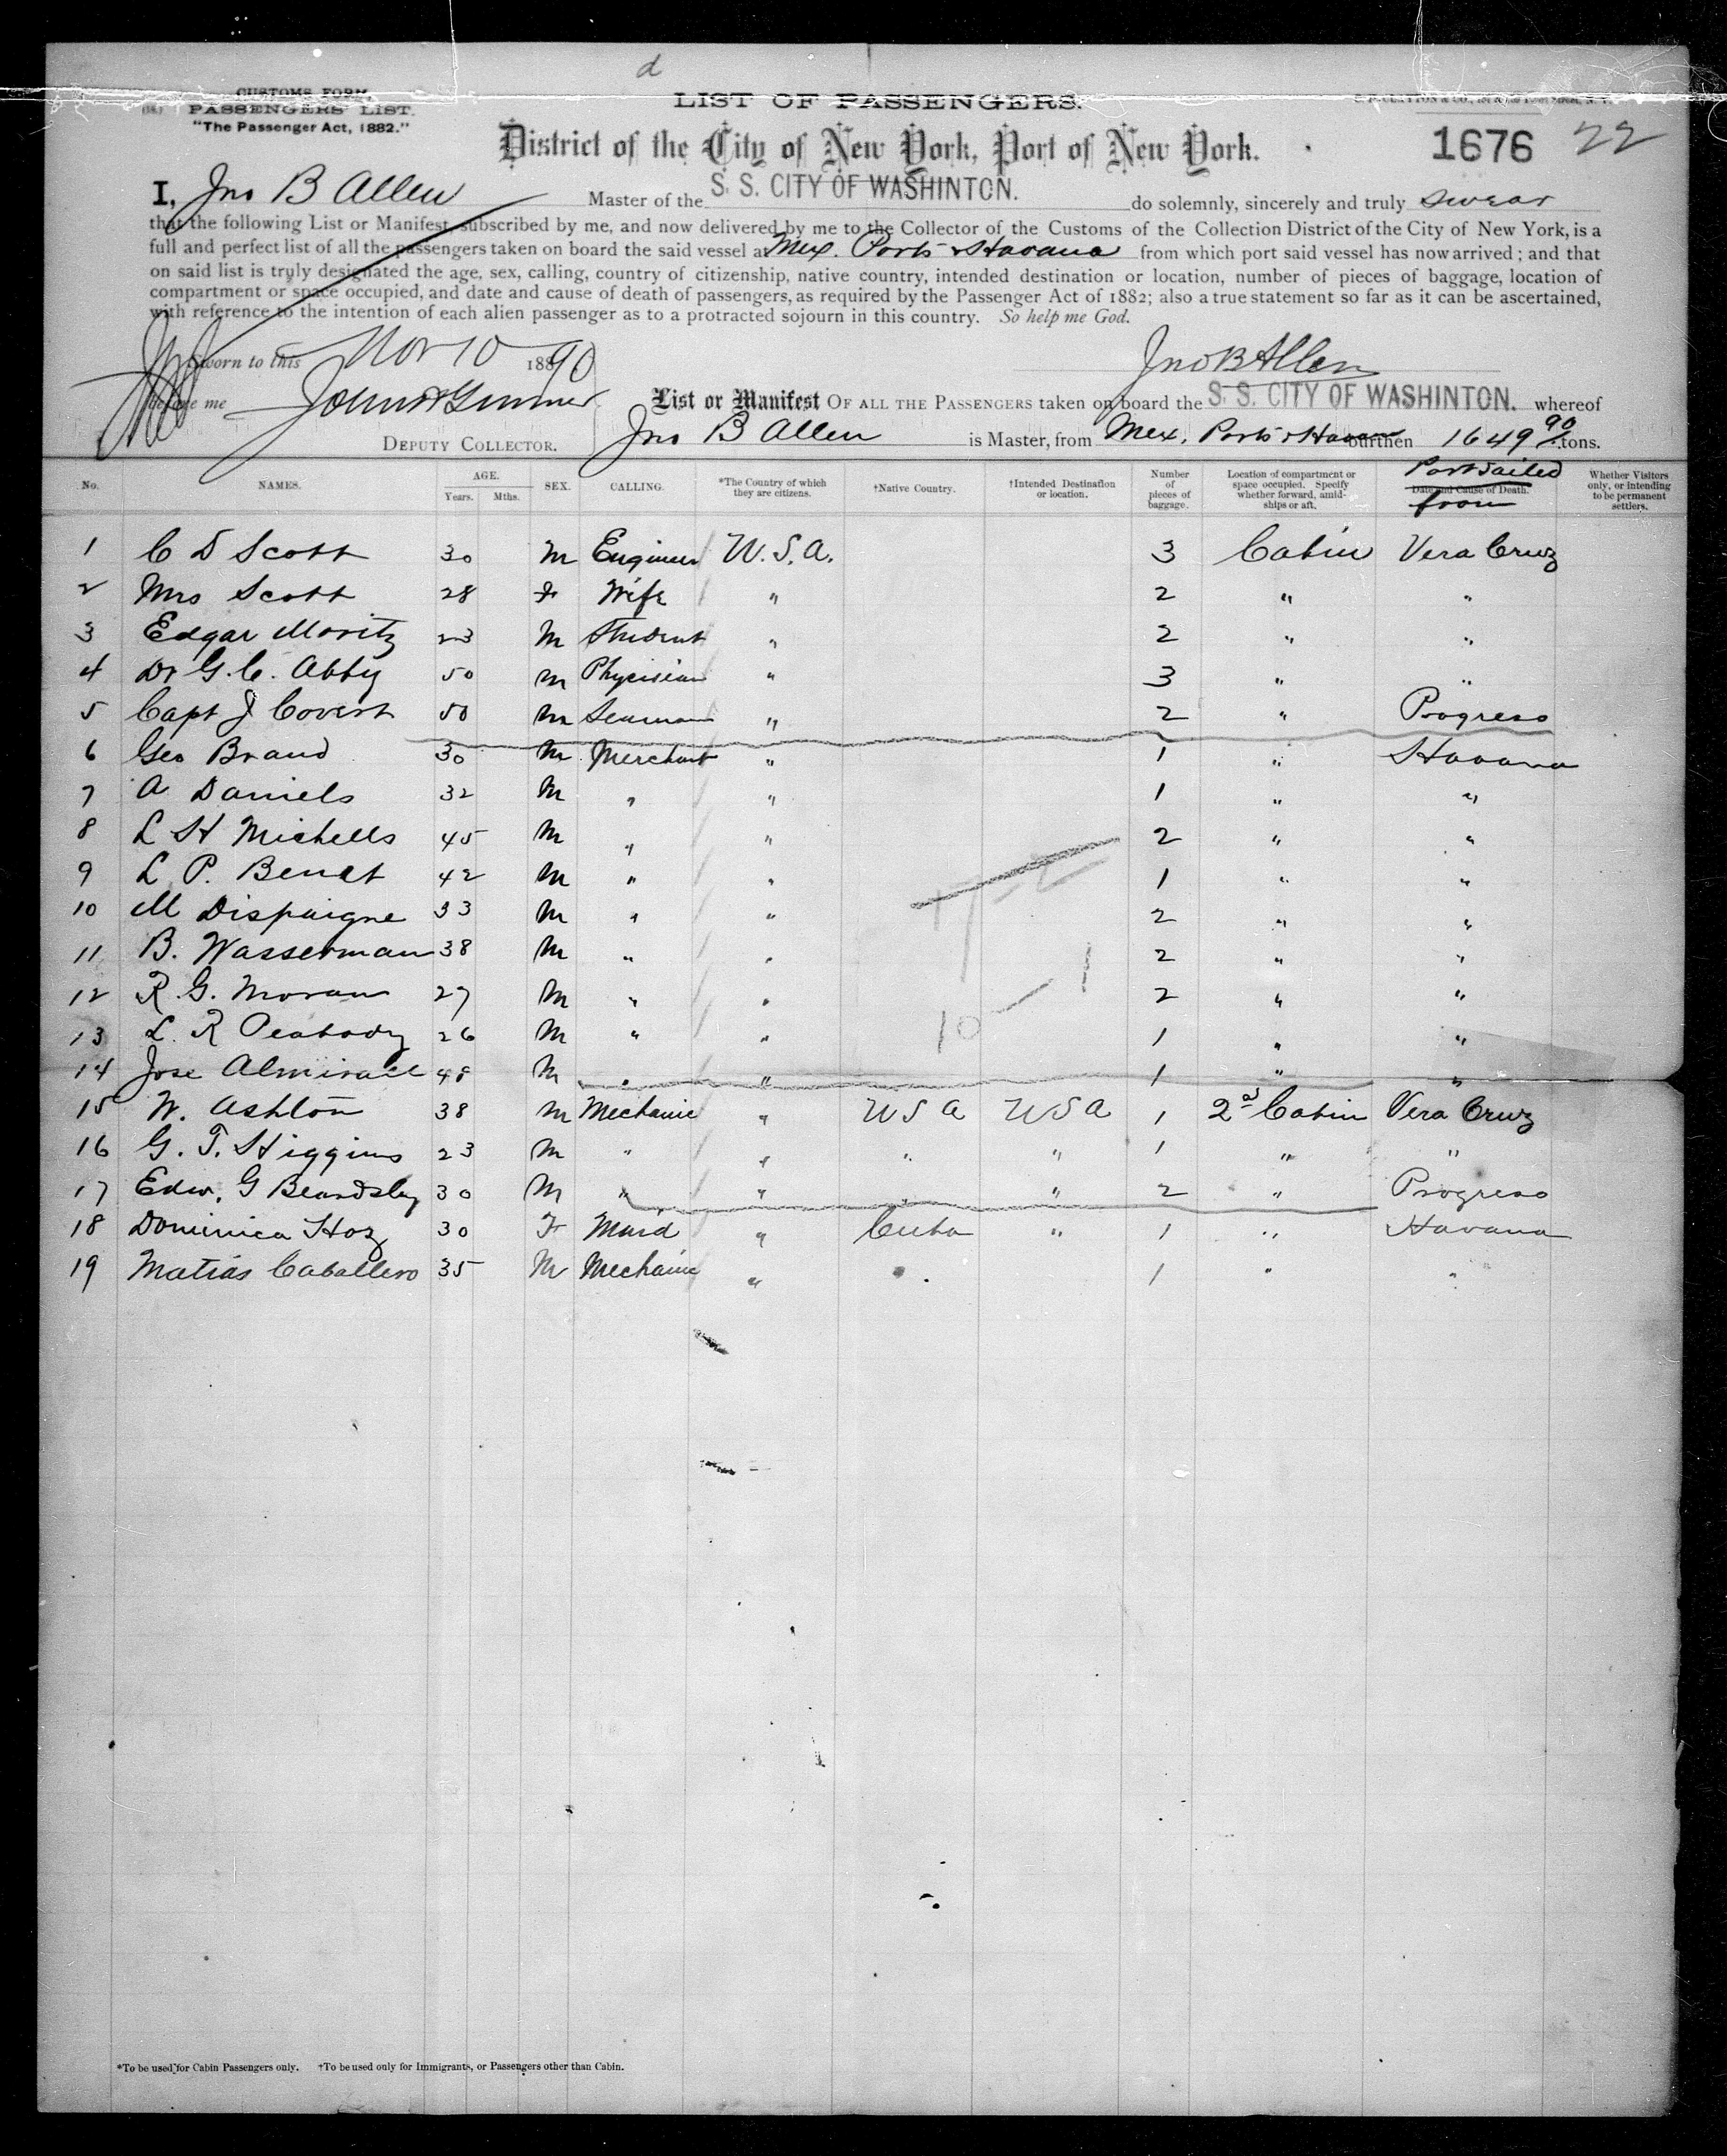 d
CUSTOMS FORM,
PASSENGERS' LIST.
"The Passenger Act, 1882."
LIST OF PASSENGERS.
District of the City of New York, Port of New York.
1676 22
I, Jno B Allen Master of the S. S. CITY OF WASHINTON. do solemnly, sincerely and truly swear
that the following List or Manifest, subscribed by me, and now delivered by me to the Collector of the Customs of the Collection District of the City of New York, is a
full and perfect list of all the passengers taken on board the said vessel at Mex. Ports & Havana from which port said vessel has now arrived; and that
on said list is truly designated the age, sex, calling, country of citizenship, native country, intended destination or location, number of pieces of baggage, location of
compartment or space occupied, and date and cause of death of passengers, as required by the Passenger Act of 1882; also a true statement so far as it can be ascertained,
with reference to the intention of each alien passenger as to a protracted sojourn in this country. So help me God.
Sworn to this Nov 10 1890 Jno B Allen
before me
DEPUTY COLLECTOR.
List or Manifest OF ALL THE PASSENGERS taken on board the S. S. CITY OF WASHINTON. whereof
Jno B Allen is Master, from Mex. Ports & Havana burthen 1649 90 tons.
No. NAMES. AGE. Years. Mths. SEX. CALLING. *The Country of which they are citizens. †Native Country. †Intended Destination or location. Number of pieces of baggage. Location of compartment or space occupied. Specify whether forward, amidships or aft. Date and Cause of Death. Port Sailed from Whether Visitors only, or intending to be permanent settlers.
1 C D Scott 30 M Engineer U.S.A. 3 Cabin Vera Cruz
2 Mrs Scott 28 F Wife " 2 " "
3 Edgar Moritz 23 M Student " 2 " "
4 Dr G. C. Abby 50 M Physician " 3 " "
5 Capt J Covert 50 M Seaman " 2 " Progreso
6 Geo Brand 30 M Merchant " 1 " Havana
7 A Daniels 32 M " " 1 " "
8 L H Michells 45 M " " 2 " "
9 L P. Benet 42 M " " 1 " "
10 M Dispaigne 33 M " " 2 " "
11 B. Wasserman 38 M " " 2 " "
12 R. G. Moran 27 M " " 2 " "
10 - 1
13 L. R Peabody 26 M " " 1 " "
14 Jose Almirall 48 M " " 1 " "
15 W. Ashton 38 M Mechanic " U S A U S A 1 2d Cabin Vera Cruz
16 G. T. Higgins 23 M " " " " 1 " "
17 Edw. G Beardsley 30 M " " " " 2 " Progreso
18 Dominica Hoz 30 F Maid " Cuba " 1 " Havana
19 Matias Caballero 35 M Mechanic " " 1 " "
*To be used for Cabin Passengers only. †To be used only for Immigrants, or Passengers other than Cabin.